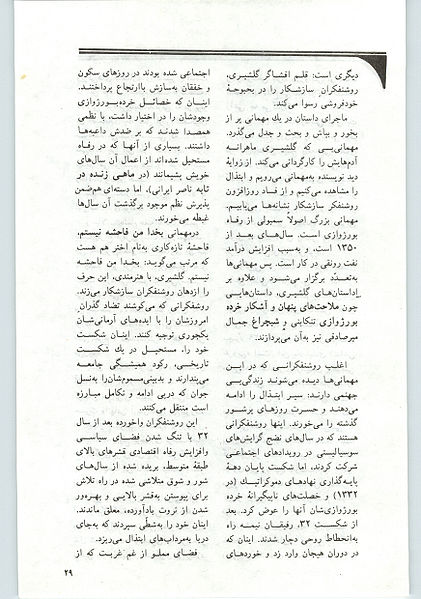 دیگری است: قلم افشاگر گلشیری،
روشنفکران سازشکار را در بحبوحهٔ
خودفروشی رسوا می‌کند.
ماجرای داستان در یك مهمانی پر از
بخور و بپاش و بحث و جدل می‌گذرد.
مهمانی‌یی که گلشیری ماهرانه
آدمهایش را کارگردانی می‌کند. از زوایهٔ
دید نویسنده به‌مهمانی می‌رویم و ابتذال
را مشاهده می‌کنیم و از فساد روزافزون
روشنفکر سازشکار نشانه‌ها می‌یابیم.
مهمانی بزرگ اصولاً سمبولی از رفاه
بورژوازی است. سال‌های بعد از
۱۳۵۰ است، و به‌سبب افزایش درآمد
نفت رونقی در کار است. پس مهمانی‌ها
به‌تعدد برگزار می‌شود و علاوه بر
داستان‌های گلشیری، داستان‌هایی
چون ملاحت‌های پنهان و آشکار خرده
بورژوازی تنکابنی و شبچراغ جمال
میرصادقی نیز به‌آن می‌پردازند.
اغلب روشنفکرانی که در این
مهمانی‌ها دیده می‌شوند زندگی‌یی
جهنمی دارند: سیر ابتذال را ادامه
می‌دهند و حسرت روزهای پرشور
گذشته را می‌خورند. اینها روشنفکرانی
هستند که در سال‌های نضج گرایش‌های
سوسیالیستی در رویدادهای اجتماعی
شرکت کردند، اما شکست پایان دههٔ
پایه‌گذاری نهادهای دموکراتیك (در
۱۳۳۲) و خصلت‌های ناپیگیرانهٔ خرده
بورژوازی‌شان آنها را عوض کرد. بعد
از شکست ۳۲، رفیقان نیمه راه
به‌انحطاط روحی دچار شدند. اینان که
در دوران هیجان وارد زد و خوردهای
اجتماعی شده بودند در روزهای سکون
و خفقان به‌سازش باارتجاع پرداختند.
اینان که خصائل خرده‌بورژوازی
وجودشان را در اختیار داشت، با نظمی
همصدا شدند که بر ضدش داعیه‌ها
داشتند. بسیاری از آنها که در رفاه
مستحیل شده‌اند از اعمال آن سال‌های
خویش پشیمانند (در ماهی زنده در
تابه ناصر ایرانی)، اما دسته‌ای هم‌ضمن
پذیرش نظم موجود برگذشت آن سال‌ها
غبطه می‌خورند.
درمهمانی بخدا من فاحشه نیستم،
فاحشهٔ تازه‌کاری به‌نام اختر هم هست
که مرتب می‌گوید: بخدا من فاحشه
نیستم. گلشیری، با هنرمندی، این حرف
را ازدهان روشنفکران سازشکار می‌زند.
روشنفکرانی که می‌کوشند تضاد گذران
امروزشان را با ایده‌های آرمانی‌شان
یکجوری توجیه کنند. اینان شکست
خود را، مستحیل در یك شکست
تاریخی، رکود همیشگی جامعه
می‌پندارند و بدبینی‌مسموم‌شان‌را به‌نسل
جوان که درپی ادامه و تکامل مبارزه
است منتقل می‌کنند.
این روشنفکران واخورده بعد از سال
۳۲ با تنگ شدن فضای سیاسی
وافزایش رفاه اقتصادی قشرهای بالای
طبقهٔ متوسط، بریده شده از سال‌های
شور و شوق متلاشی شده در راه تلاش
برای پیوستن به‌قشر بالایی و بهره‌ور
شدن از ثروت بادآورده، معلق ماندند،
اینان خود را به‌شطّی سپردند که به‌جای
دریا به‌مرداب‌های ابتذال می‌ریزد.
فضای مملو از غم غربت که از
۲۹